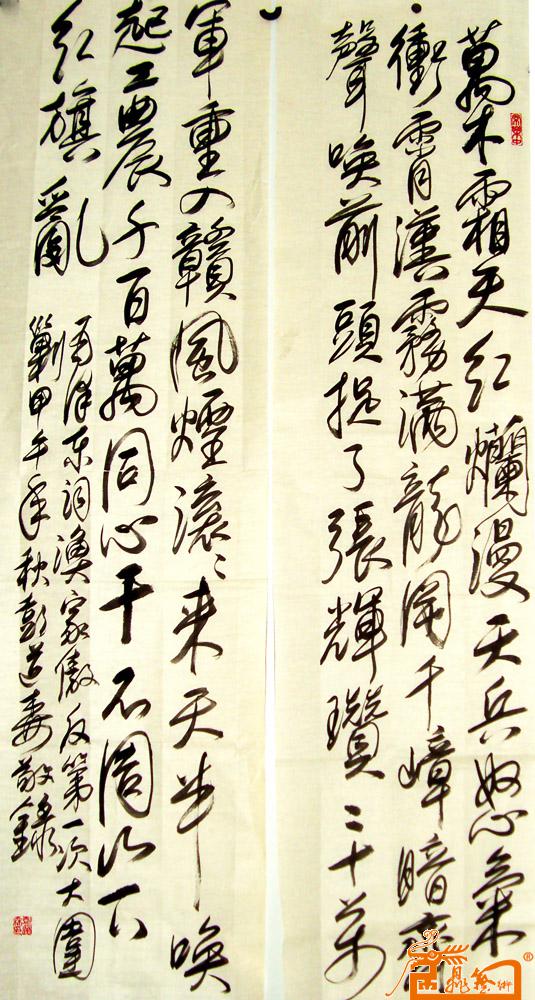 萬木霜天紅爛漫天兵怒氣
衝霄漢霧滿龍岡千嶂暗齊
聲喚前頭捉了張輝瓚二十萬
軍重入贛風煙滾〻来天半喚
起工農千百萬同心干不周山下
紅旗亂
澤东詞漁家傲反第一次大圍
剿甲午年秋彭道